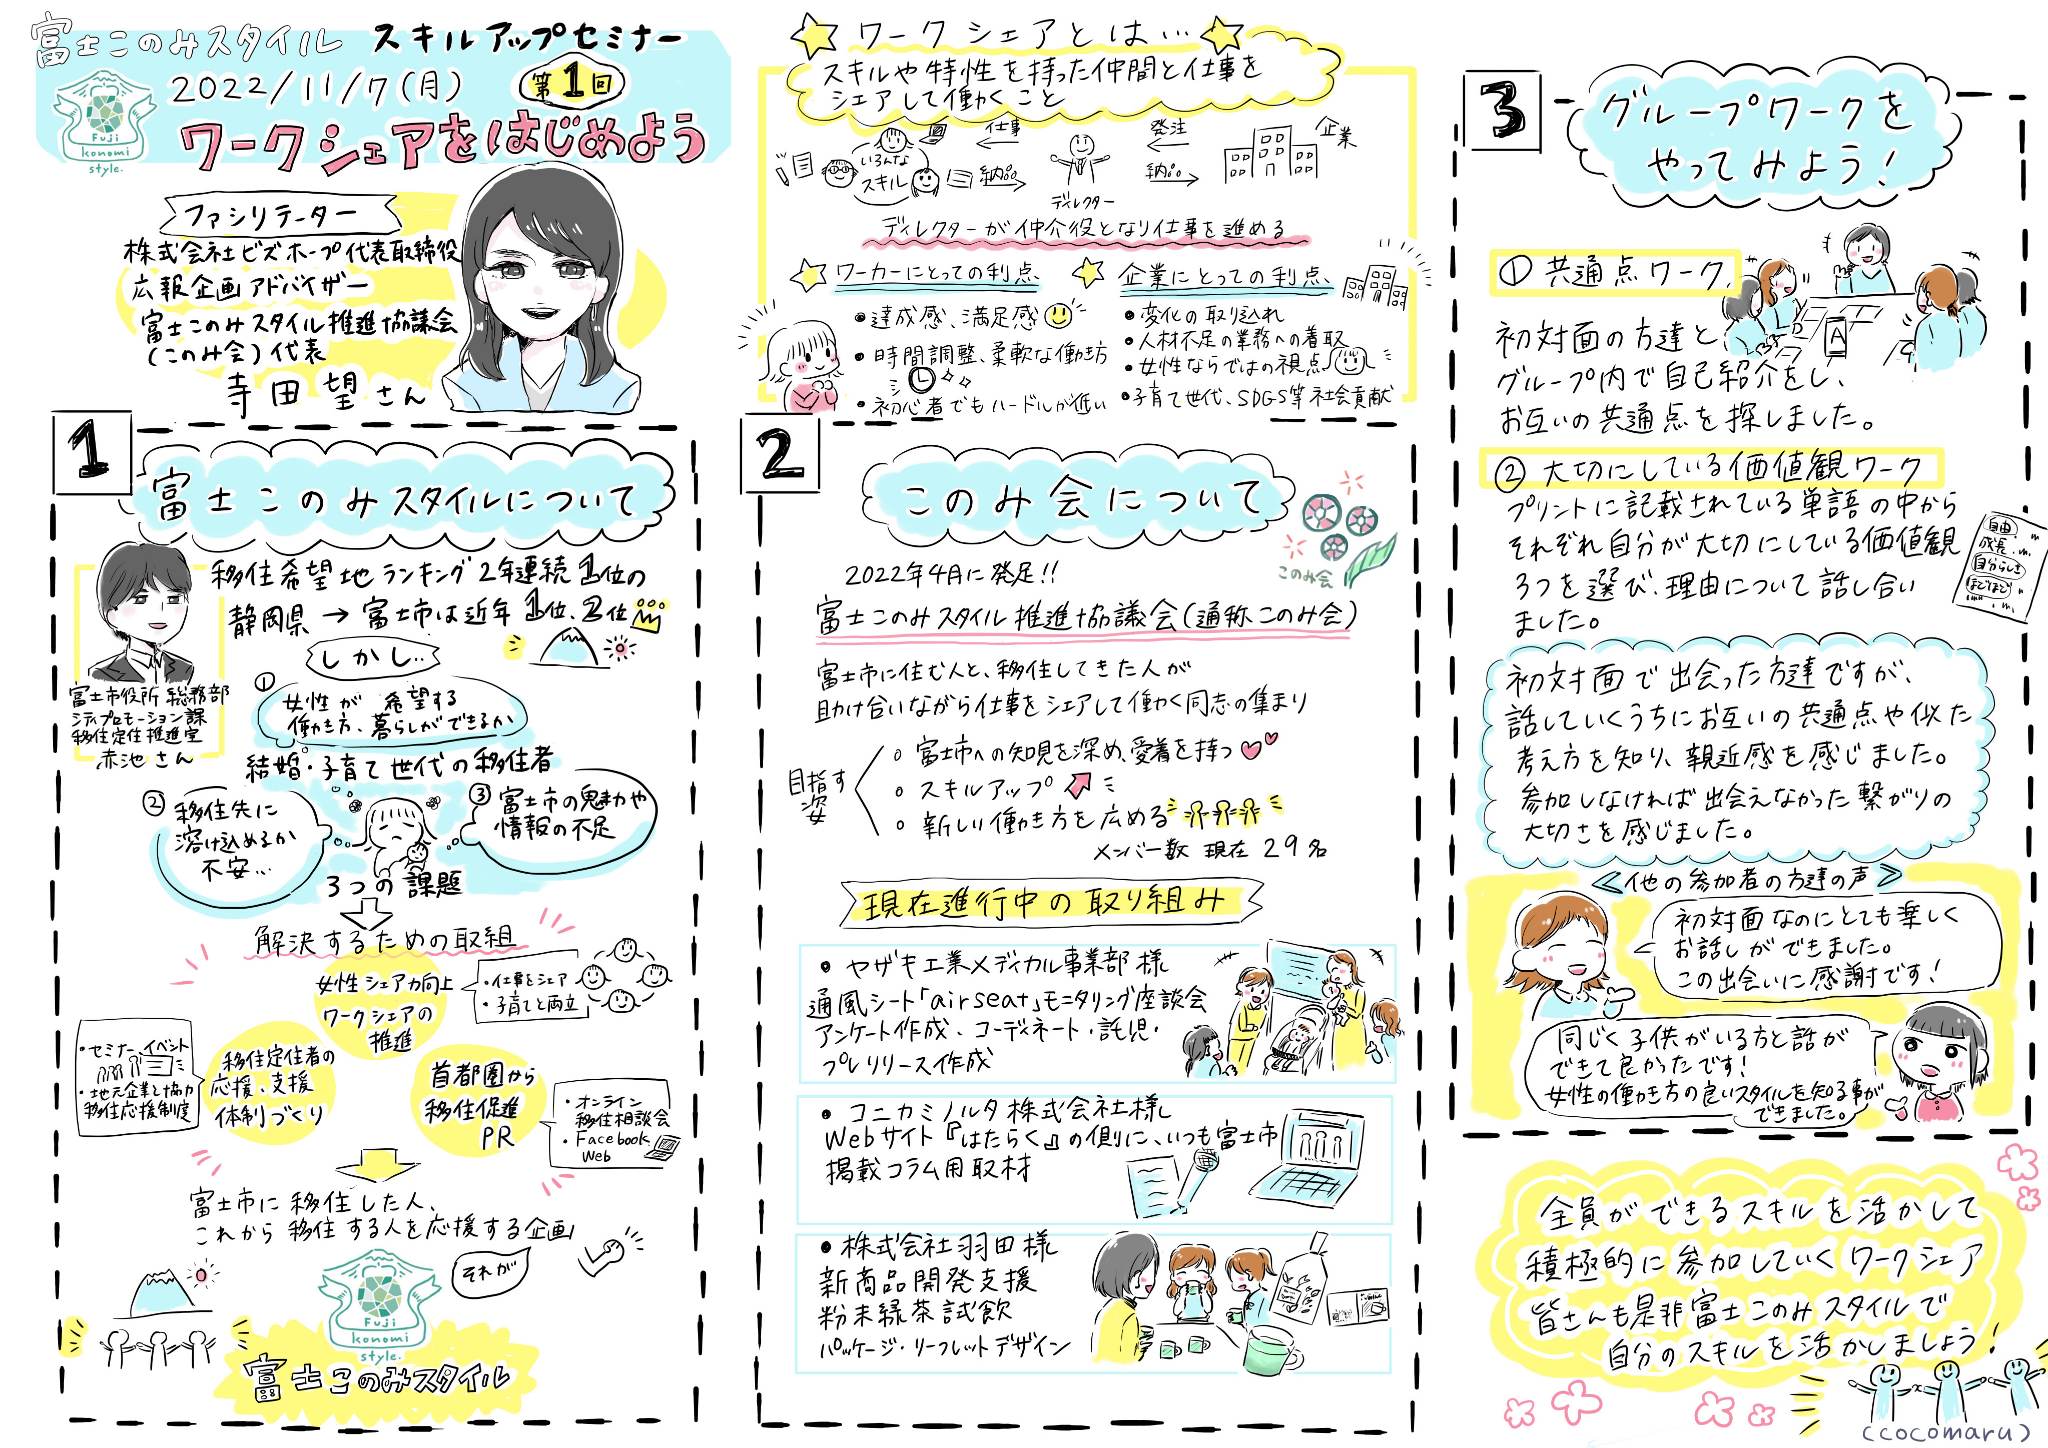 富士このみスタイル スキルアップセミナー
2022/11/7(月) 第1回
ワークシェアをはじめよう
Fuji
konomi
style.
ファシリテーター
株式会社ビズホープ代表取締役
広報企画アドバイザー
富士このみスタイル推進協議会
(このみ会)代表
寺田望さん
ワークシェアとは…
スキルや特性を持った仲間と仕事を
シェアして働くこと
いろんな
スキル
仕事
納品
ディレクター
発注
納品
企業
ディレクターが仲介役となり仕事を進める
ワーカーにとっての利点、
●達成感、満足感
●時間調整、柔軟な働き方
●初心者でもハードルが低い
企業にとっての利点、
●変化の取り込れ
●人材不足の業務への着取
●女性ならではの視点
●子育て世代、SDGS等社会貢献
1
富士このみスタイルについて
富士市役所 総務部
シティプロモーション課
移住定住推進室
赤池さん
移住希望地ランキング2年連続1位の
静岡県→富士市は近年1位、2位
しかし‥
①
女性が 希望する
働き方、暮らしができるか
結婚・子育て世代の移住者
②
移住先に
溶け込めるか
不安…
③
富士市の魅力や
情報の不足
3つの課題
解決するための取組
女性シェア力向上
ワークシェアの
推進
・仕事をシェア
・子育てと両立
・セミナー、イベント
・地元企業と協力
移住応援制度
移住定住者の
応援、支援
体制づくり
首都圏から
移住促進
PR
・オンライン
移住相談会
・Facebook
Web
富士市に移住した人、
これから移住する人を応援する企画
それが
Fuji
konomi
style.
富士このみスタイル
2
このみ会について
このみ会
2022年4月に発足!!
富士このみスタイル推進協議会(通称このみ会)
富士市に住む人と、移住してきた人が
助け合いながら仕事をシェアして働く同志の集まり
目指す
姿
○ 富士市への知見を深め、愛着を持つ
○ スキルアップ
○ 新しい働き方を広める
メンバー数 現在 29名
現在進行中の取り組み
●ヤザキ工業メディカル事業部様
通風シート「airseat」モニタリング座談会
アンケート作成、コーディネート・託児・
プレリリース作成
●コニカミノルタ株式会社様
Webサイト『はたらく』の側に、いつも富士市
掲載コラム用取材
●株式会社羽田様
新商品開発支援
粉末緑茶試飲
パッケージ・リーフレットデザイン
3
グループワークを
やってみよう!
①共通点ワーク
A
初対面の方達と
グループ内で自己紹介をし、
お互いの共通点を探しました。
②大切にしている価値観ワーク
プリントに記載されている単語の中から
それぞれ自分が大切にしている価値観
3つを選び、理由について話し合い
ました。
自由
成長
自分らしさ
ほどほど
初対面で出会った方達ですが、
話していくうちにお互いの共通点や似た
考え方を知り、親近感を感じました。
参加しなければ出会えなかった繋がりの
大切さを感じました。
≪他の参加者の方達の声≫
初対面なのにとても楽しく
お話しができました。
この出会いに感謝です!
同じく子供がいる方と話が
できて良かったです!
女性の働き方の良いスタイルを知る事が
できました。
全員ができるスキルを活かして
積極的に参加していくワークシェア
皆さんも是非富士このみスタイルで
自分のスキルを活かしましょう!
(cocomaru)